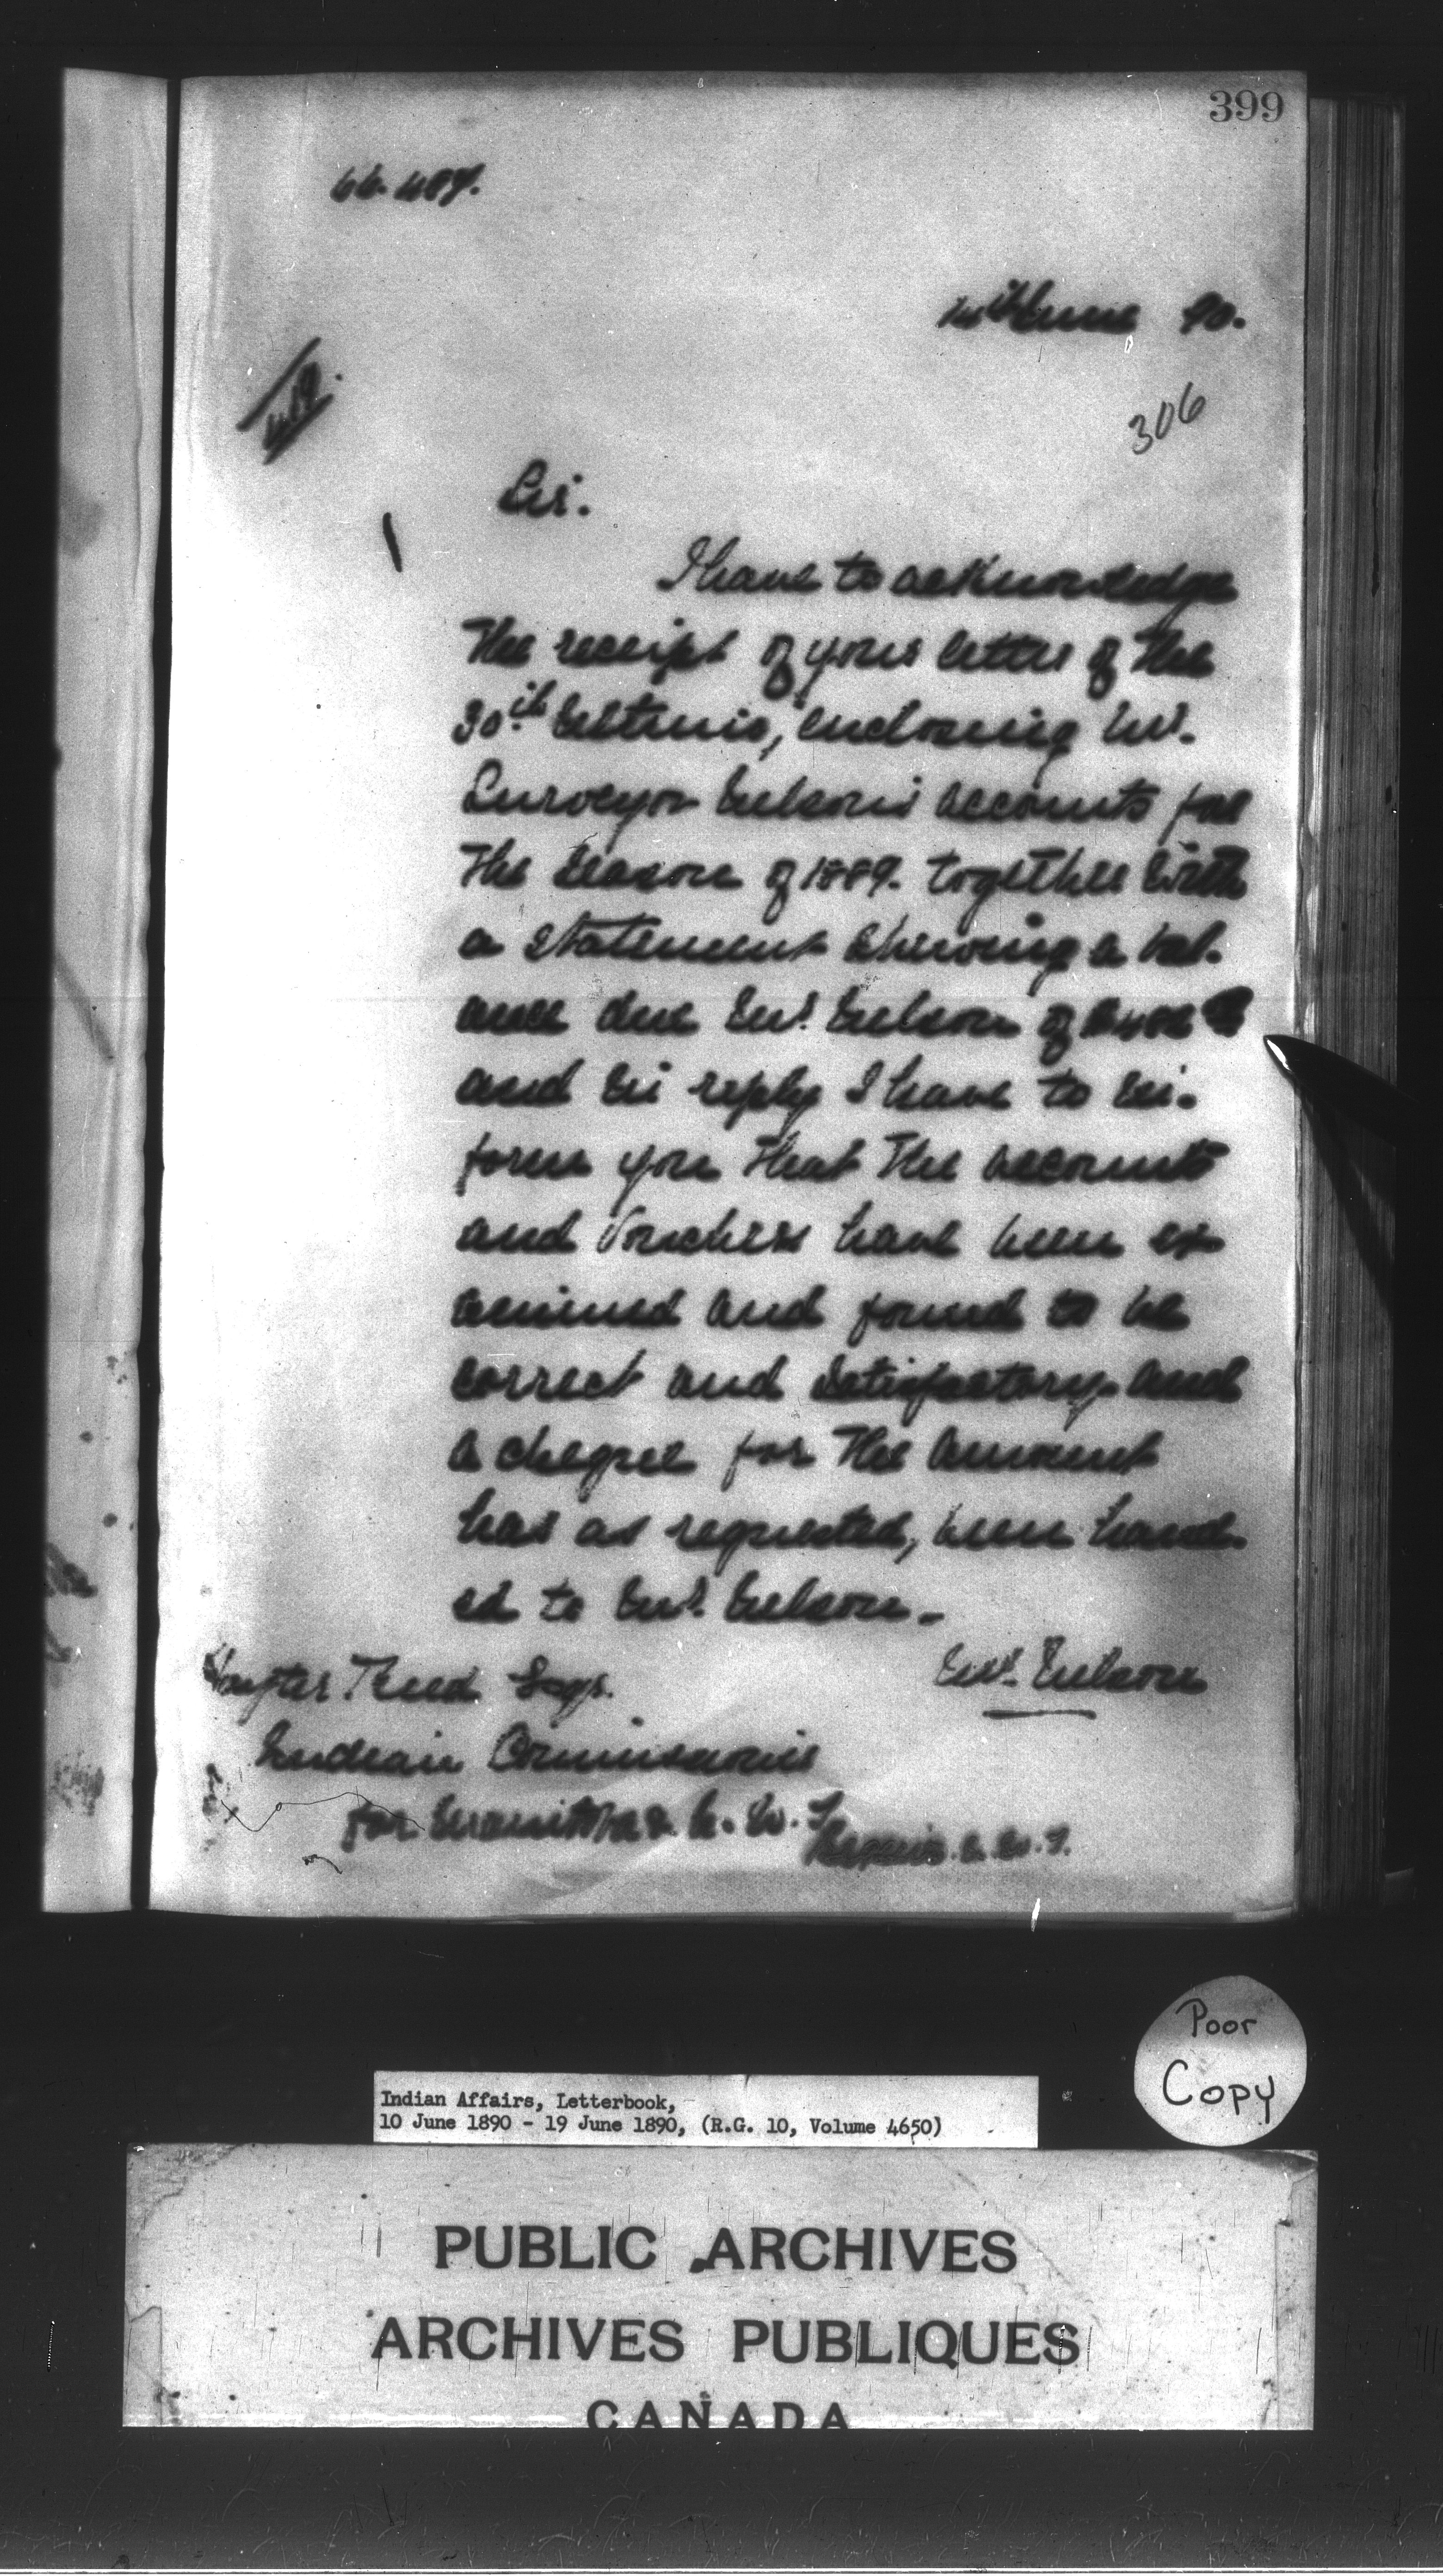 399
14th June 90.
306
Sir.
I have to acknowledge
the receipt of your letter of the
30th Ultimo, enclosing Mr.
Surveyor Nelson's accounts for
the season of 1889. together with
a statement shewing a bal-
ance due Mr. Nelson of
and in reply I have to in-
form you that the accounts
and vouchers have been ex
amined and found to be
correct and satisfactory. and
a cheque for the amount
has as requested, been hand-
ed to Mr. Nelson.-
Hayter Reed Esqr.
Indian Commissioner
for Manitoba & N. W. T.
Regina. N. W. T.
Mr. Nelson
Poor
Copy
Indian Affairs, Letterbook,
10 June 1890 - 19 June 1890, (R.G. 10, Volume 4650)
PUBLIC ARCHIVES
ARCHIVES PUBLIQUES
CANADA